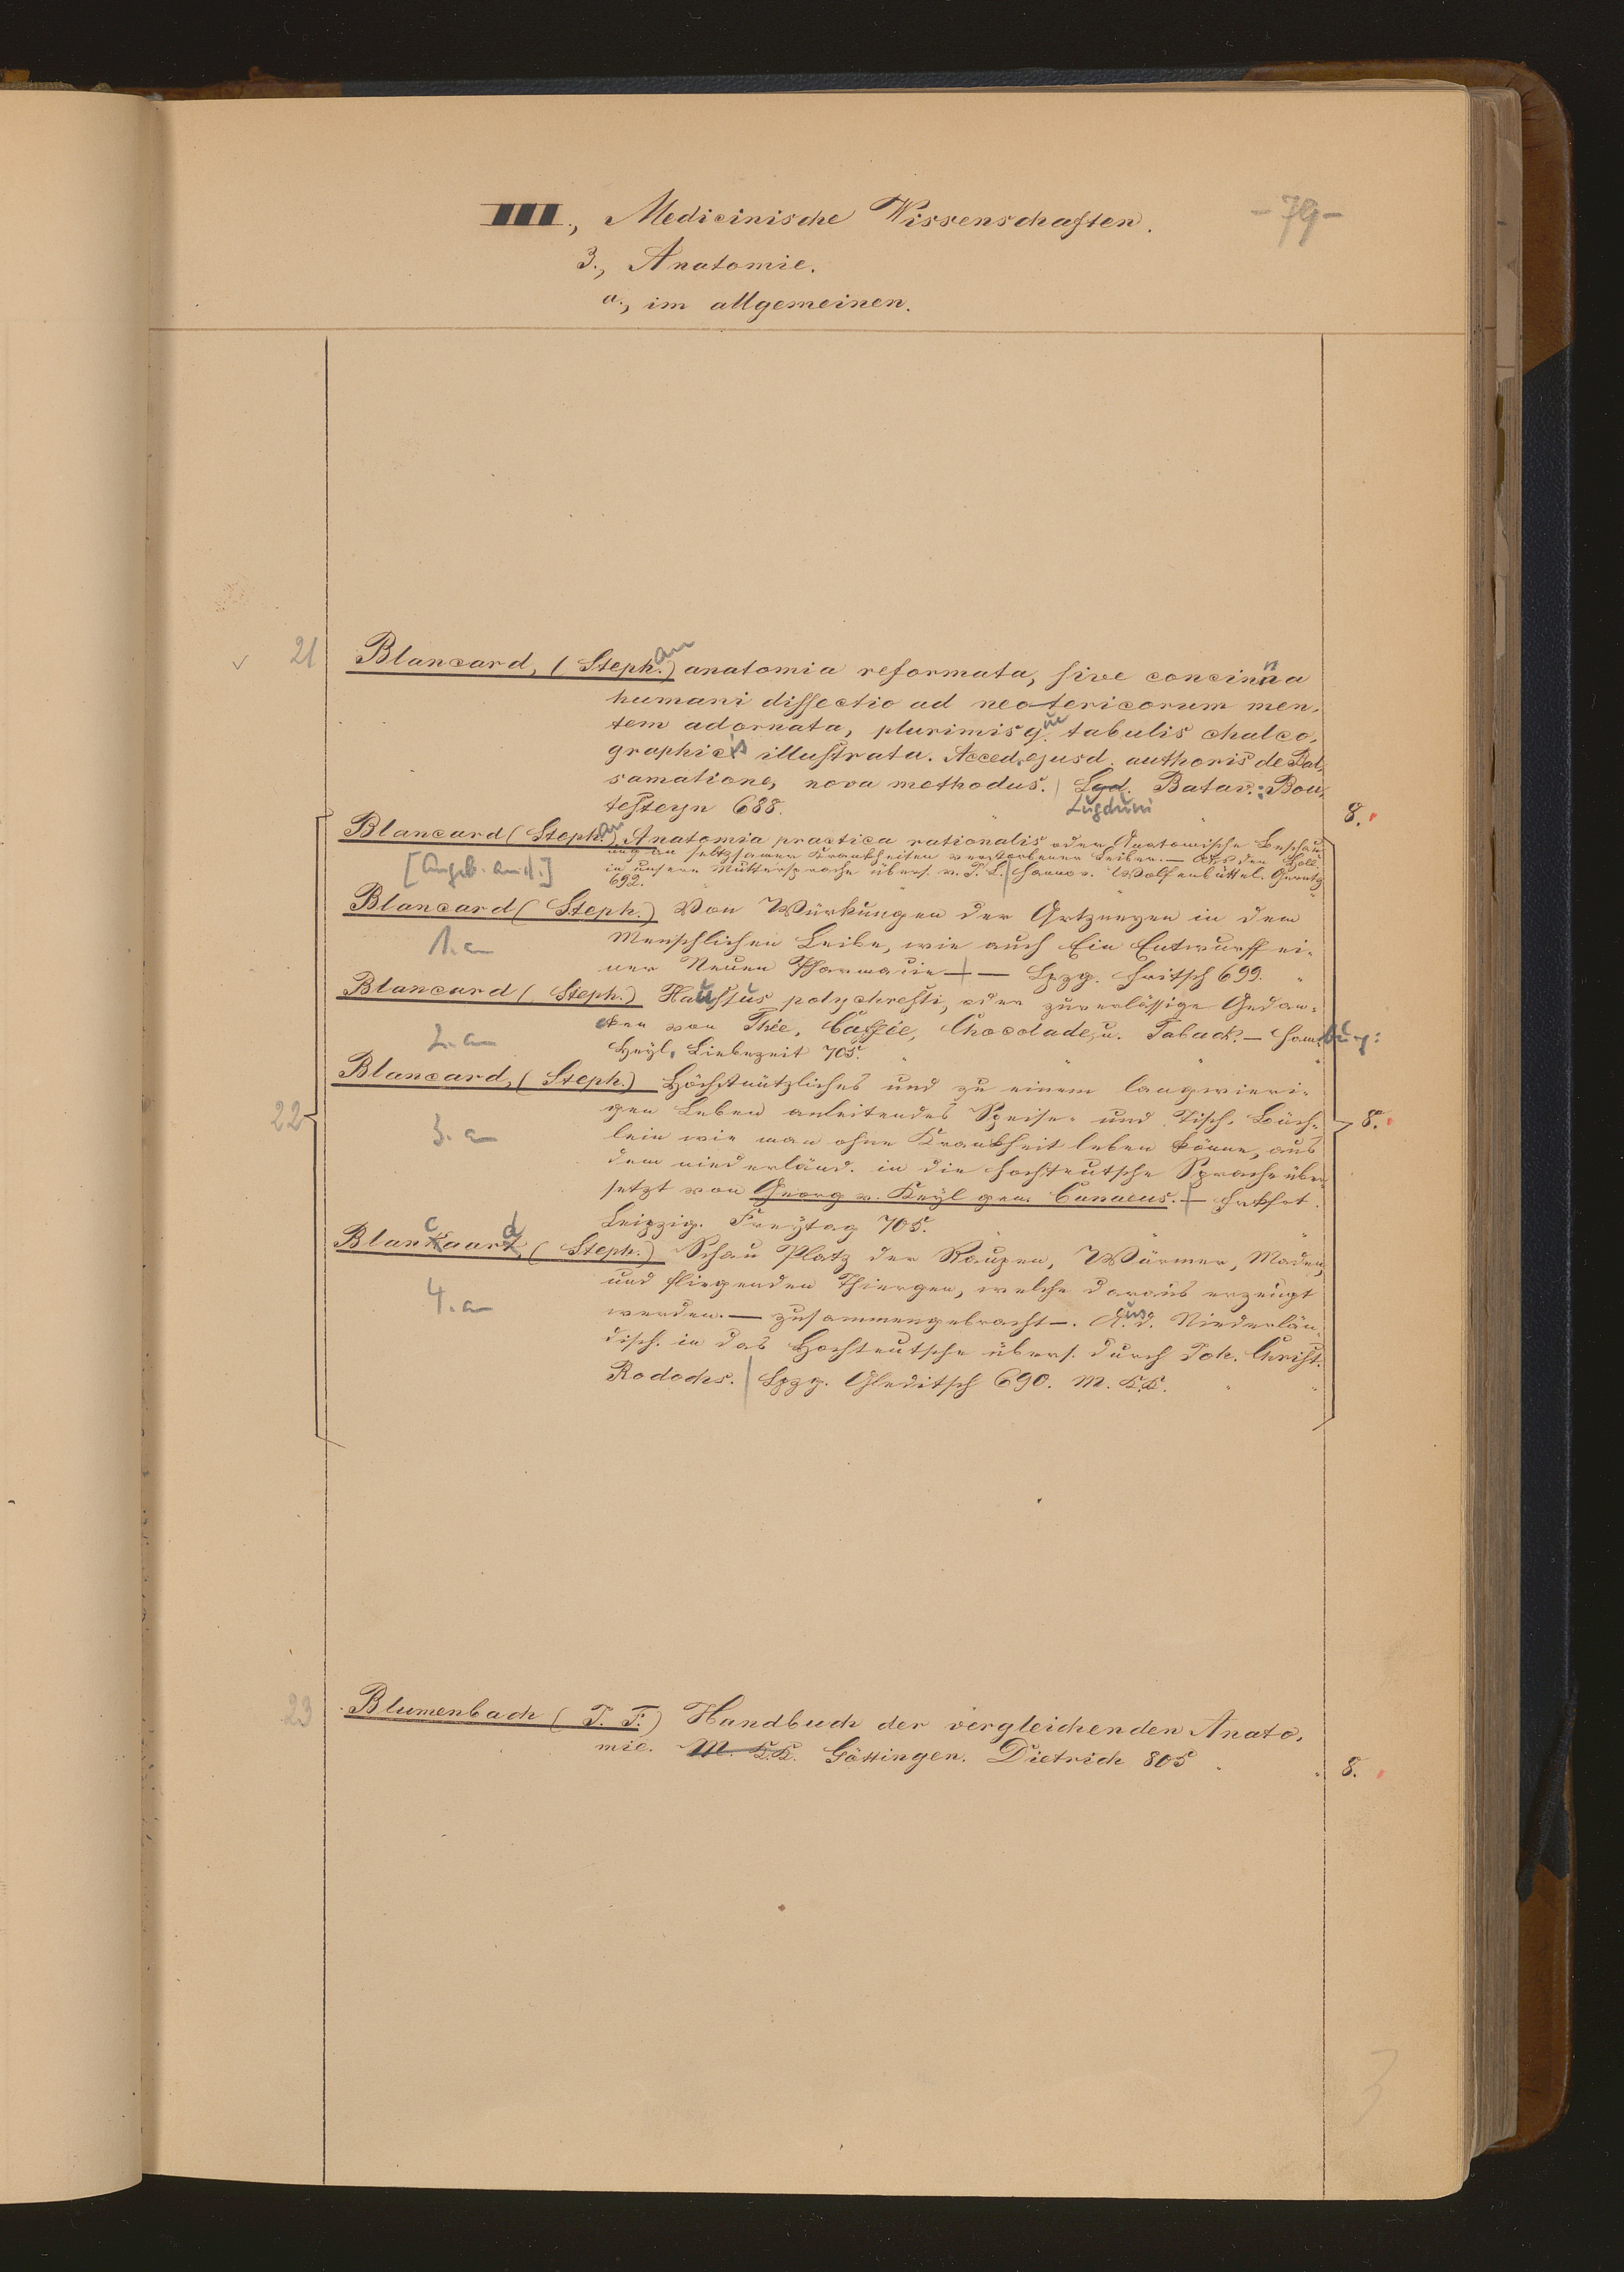 III., Medicinische Wissenschaften.
- 79 -
3., Anatomie.
a., im allgemeinen.
21 Blancard, (Stephan) anatomia reformata, sive concinna
humani dissectio ad neotericorum men-
tem adornata, plurimisque tabulis chalco-
graphicis illustrata. Acced. ejusd. authoris de Bal-
samatione, nova methodus. Lgd. Batav.: Bou-
Lugduni
testeyn 688. 8.
Blancard (Stephan) Anatomia practica rationalis oder Anatomische Beschau-
ung an seltzsamen Krankheiten verstorbener Leiber. — Aus den Holl.
[Angeb. an d.] in unsere Muttersprache übers. v. T. L. Hannov. Wolfenbüttel.
692.
Blancard (Steph.) Von Würkungen der Artzneyen in dem
1. a Menschlichen Leibe, wie auch Ein Entwurff ei-
ner Neuen Pharmacie — Lpzg. Fritsch 699.
Blancard (Steph.) Haustus polychresti, oder zuverlässige Gedan-
2. a cken von Thée, Caffée, Chocolade, u. Taback. — Hamburg:
Heyl, Liebezeit 705.
Blancard, (Steph.) Höchstnützliches und zu einem langwieri-
22 gen Leben anleitendes Speise- und Tisch-Büch- 8.
3. a lein wie man ohne Krankheit leben könne, aus
dem niederländ. in die hochteutsche Sprache über-
setzt von Georg v. Keyl gen. Cunaeus. — Frkfrt.
Leipzig. Freytag 705.
Blancaard, (Steph.) Schau Platz der Raupen, Würmer, Maden,
4. a und fliegenden Thiergen, welche daraus erzeugt
werden. — zusammengebracht —. Aus d. Niederlän-
disch. in das Hochteutsche übers. durch Joh. Christ.
Rodochs. Lpzg. Gleditsch 690. M. K.K.
23 Blumenbach (J. F.) Handbuch der vergleichenden Anato-
mie. M. K.K. Göttingen. Dietrich 805 8.
3